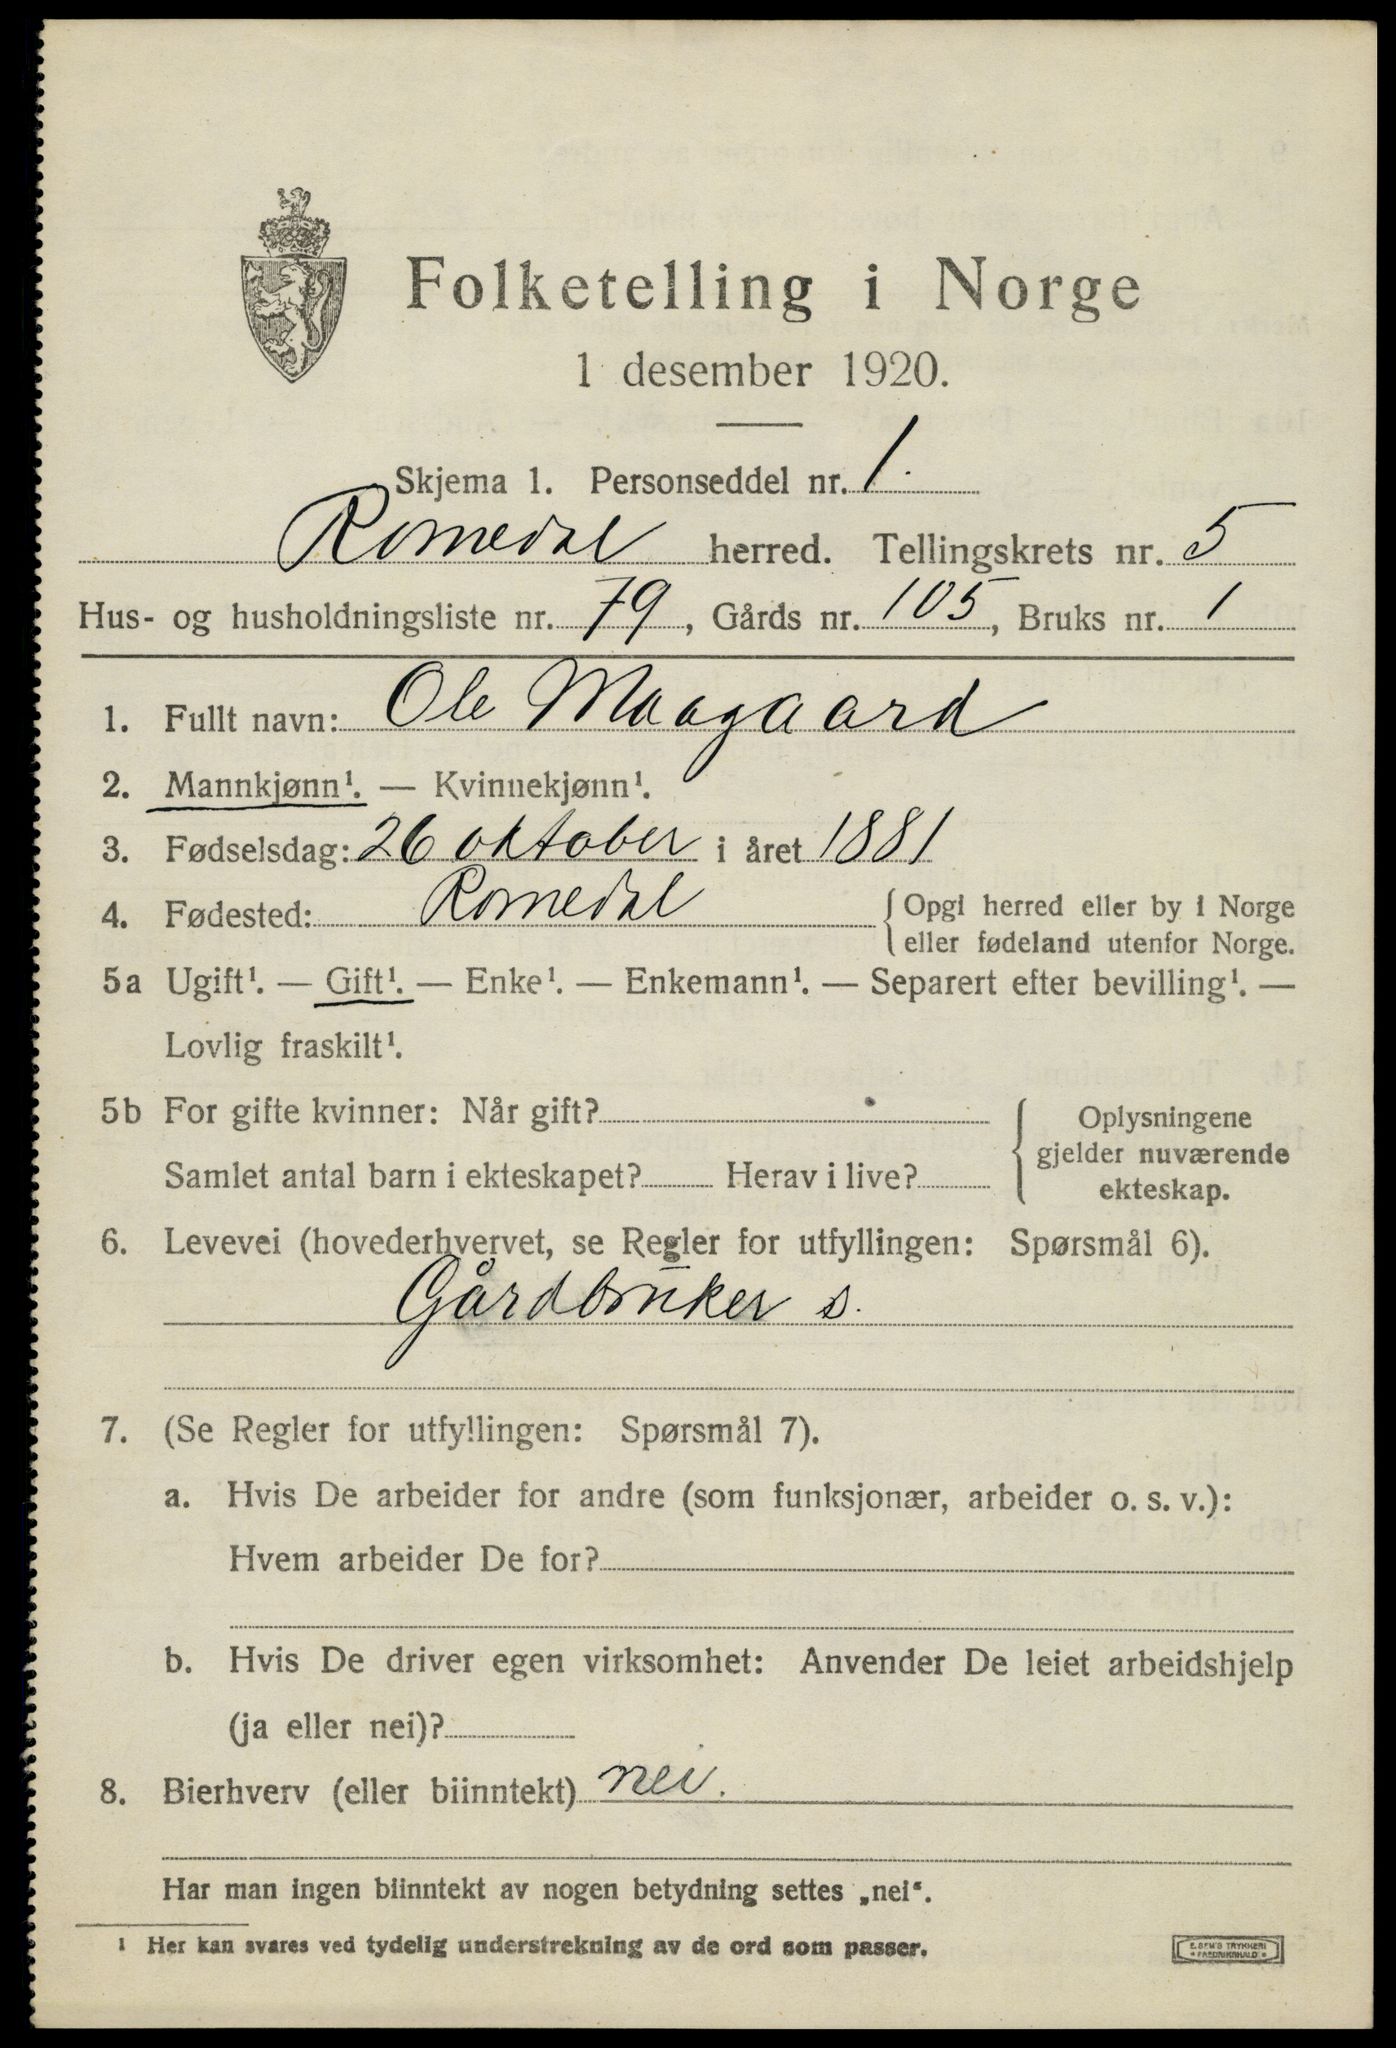 Folketelling i Norge
1 desember 1920.
Skjema 1. Personseddel nr. 1.
Romedal herred. Tellingskrets nr. 5
Hus- og husholdningsliste nr. 79, Gårds nr. 105, Bruks nr. 1
1. Fullt navn: Ole Maagaard
2. Mannkjønn¹. — Kvinnekjønn¹.
3. Fødselsdag: 26 oktober i året 1881
4. Fødested: Romedal {Opgi herred eller by i Norge
eller fødeland utenfor Norge.
5a Ugift¹. — Gift¹. — Enke¹. — Enkemann¹. — Separert efter bevilling¹. —
Lovlig fraskilt¹.
5b For gifte kvinner: Når gift?
Samlet antal barn i ekteskapet? Herav i live?
Oplysningene
gjelder nuværende
ekteskap.
6. Levevei (hovederhvervet, se Regler for utfyllingen: Spørsmål 6).
Gårdbruker s.
7. (Se Regler for utfyllingen: Spørsmål 7).
a. Hvis De arbeider for andre (som funksjonær, arbeider o. s. v.):
Hvem arbeider De for?
b. Hvis De driver egen virksomhet: Anvender De leiet arbeidshjelp
(ja eller nei)?
8. Bierhverv (eller biinntekt) nei.
Har man ingen biinntekt av nogen betydning settes „nei“.
¹ Her kan svares ved tydelig understrekning av de ord som passer.
E. SEM'S TRYKKERI
* FREDRIKSHALD *